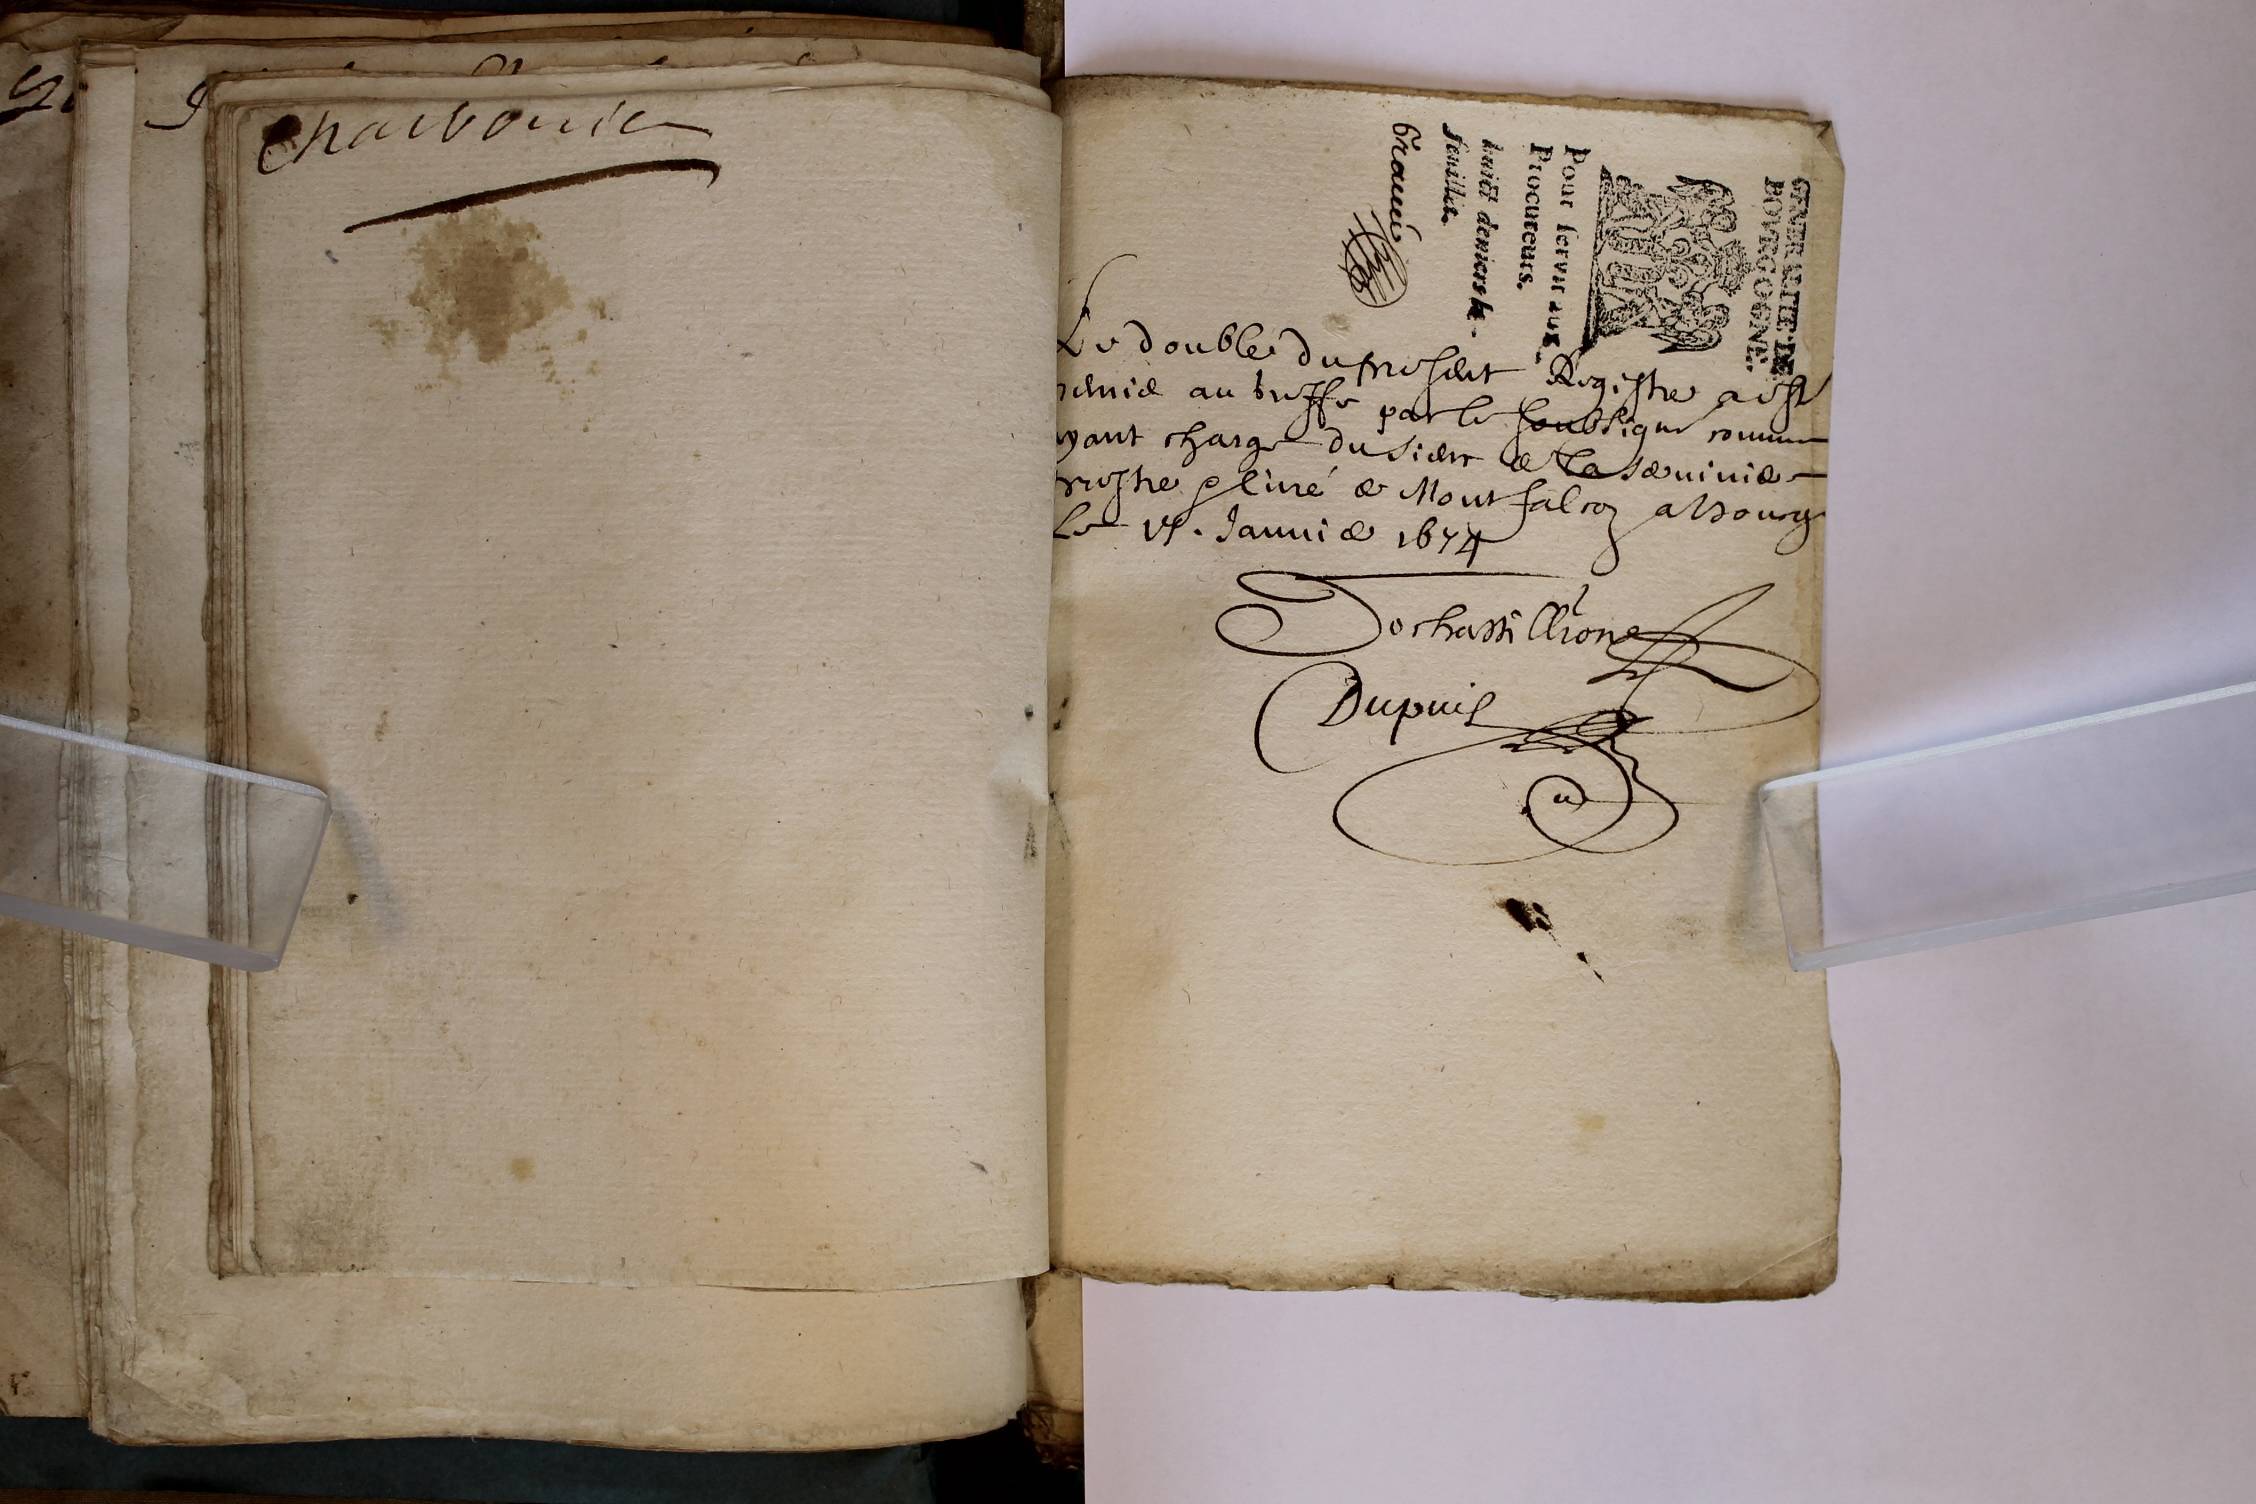 Charbonie
GENERALITE DE
BOVRGOGNE.
Pour servir aux
Procureurs.
huict deniers le
feuillet.
Le double du present Registre a esté
au greffe par le soubsigné comme
ayant charge du sieur de la
prestre de Montfalcon a Bourg
Le Januier 1674
Dupuis